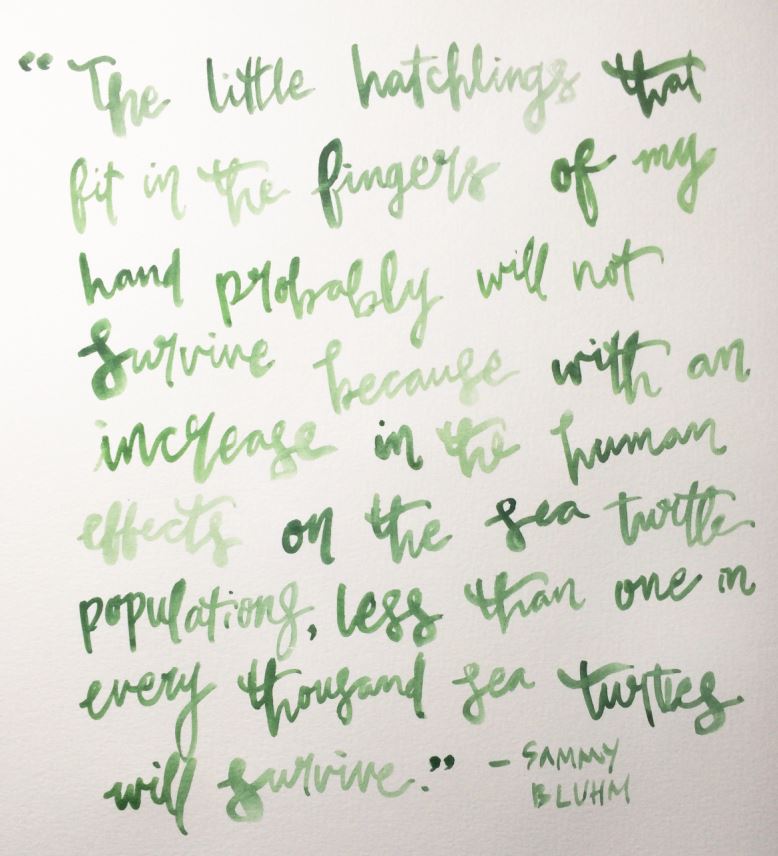 “The little hatchlings that
fit in the fingers of my
hand probably will not
survive because with an
increase in the human
effects on the sea turtle
populations, less than one in
every thousand sea turtles
will survive.” - SAMMY
BLUHM